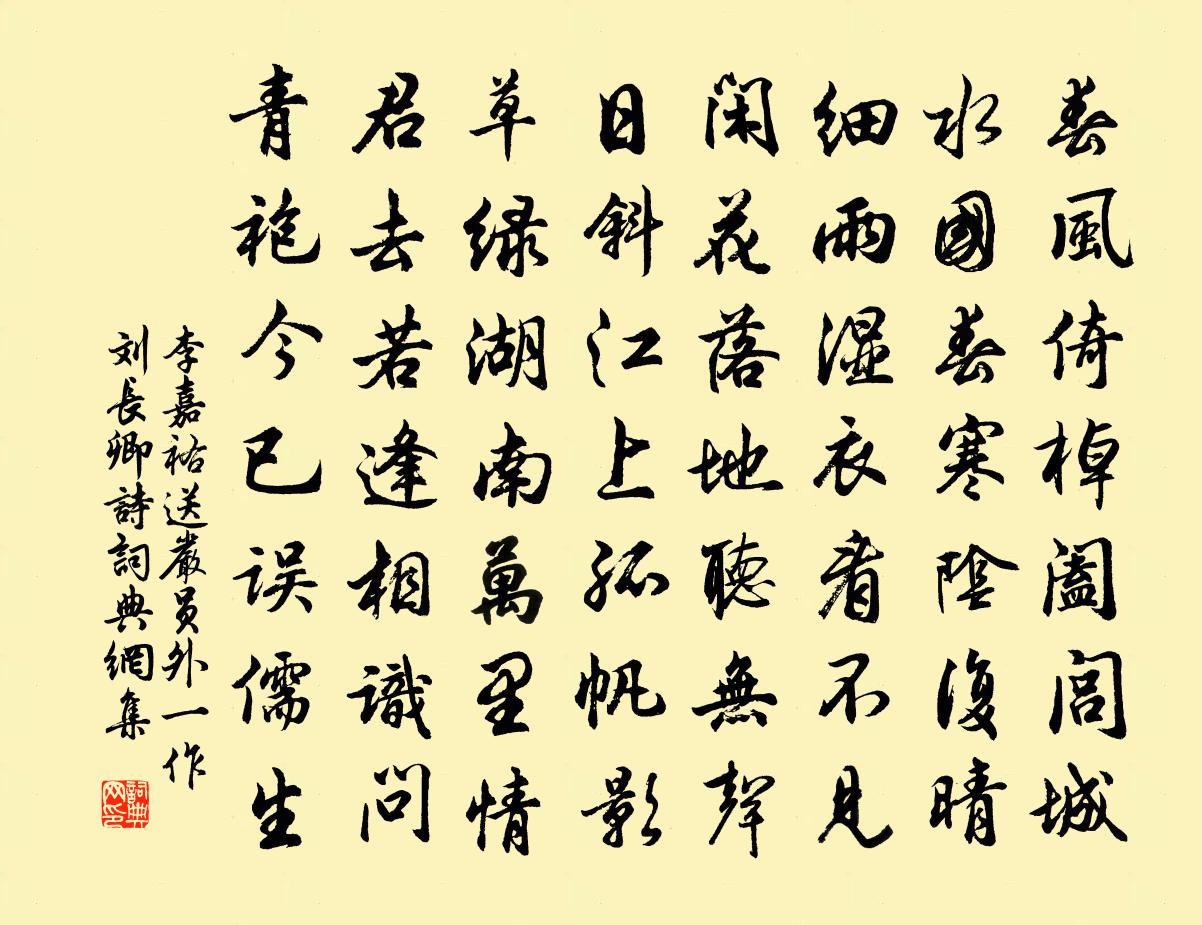 春風倚棹闔閭城
水國春寒陰復晴
細雨湿衣看不見
閑花落地聽無聲
日斜江上孤帆影
草緑湖南萬里情
君去若逢相識問
青袍今已誤儒生
李嘉祐送嚴員外一作
刘長卿詩詞典網集
詞典
网印